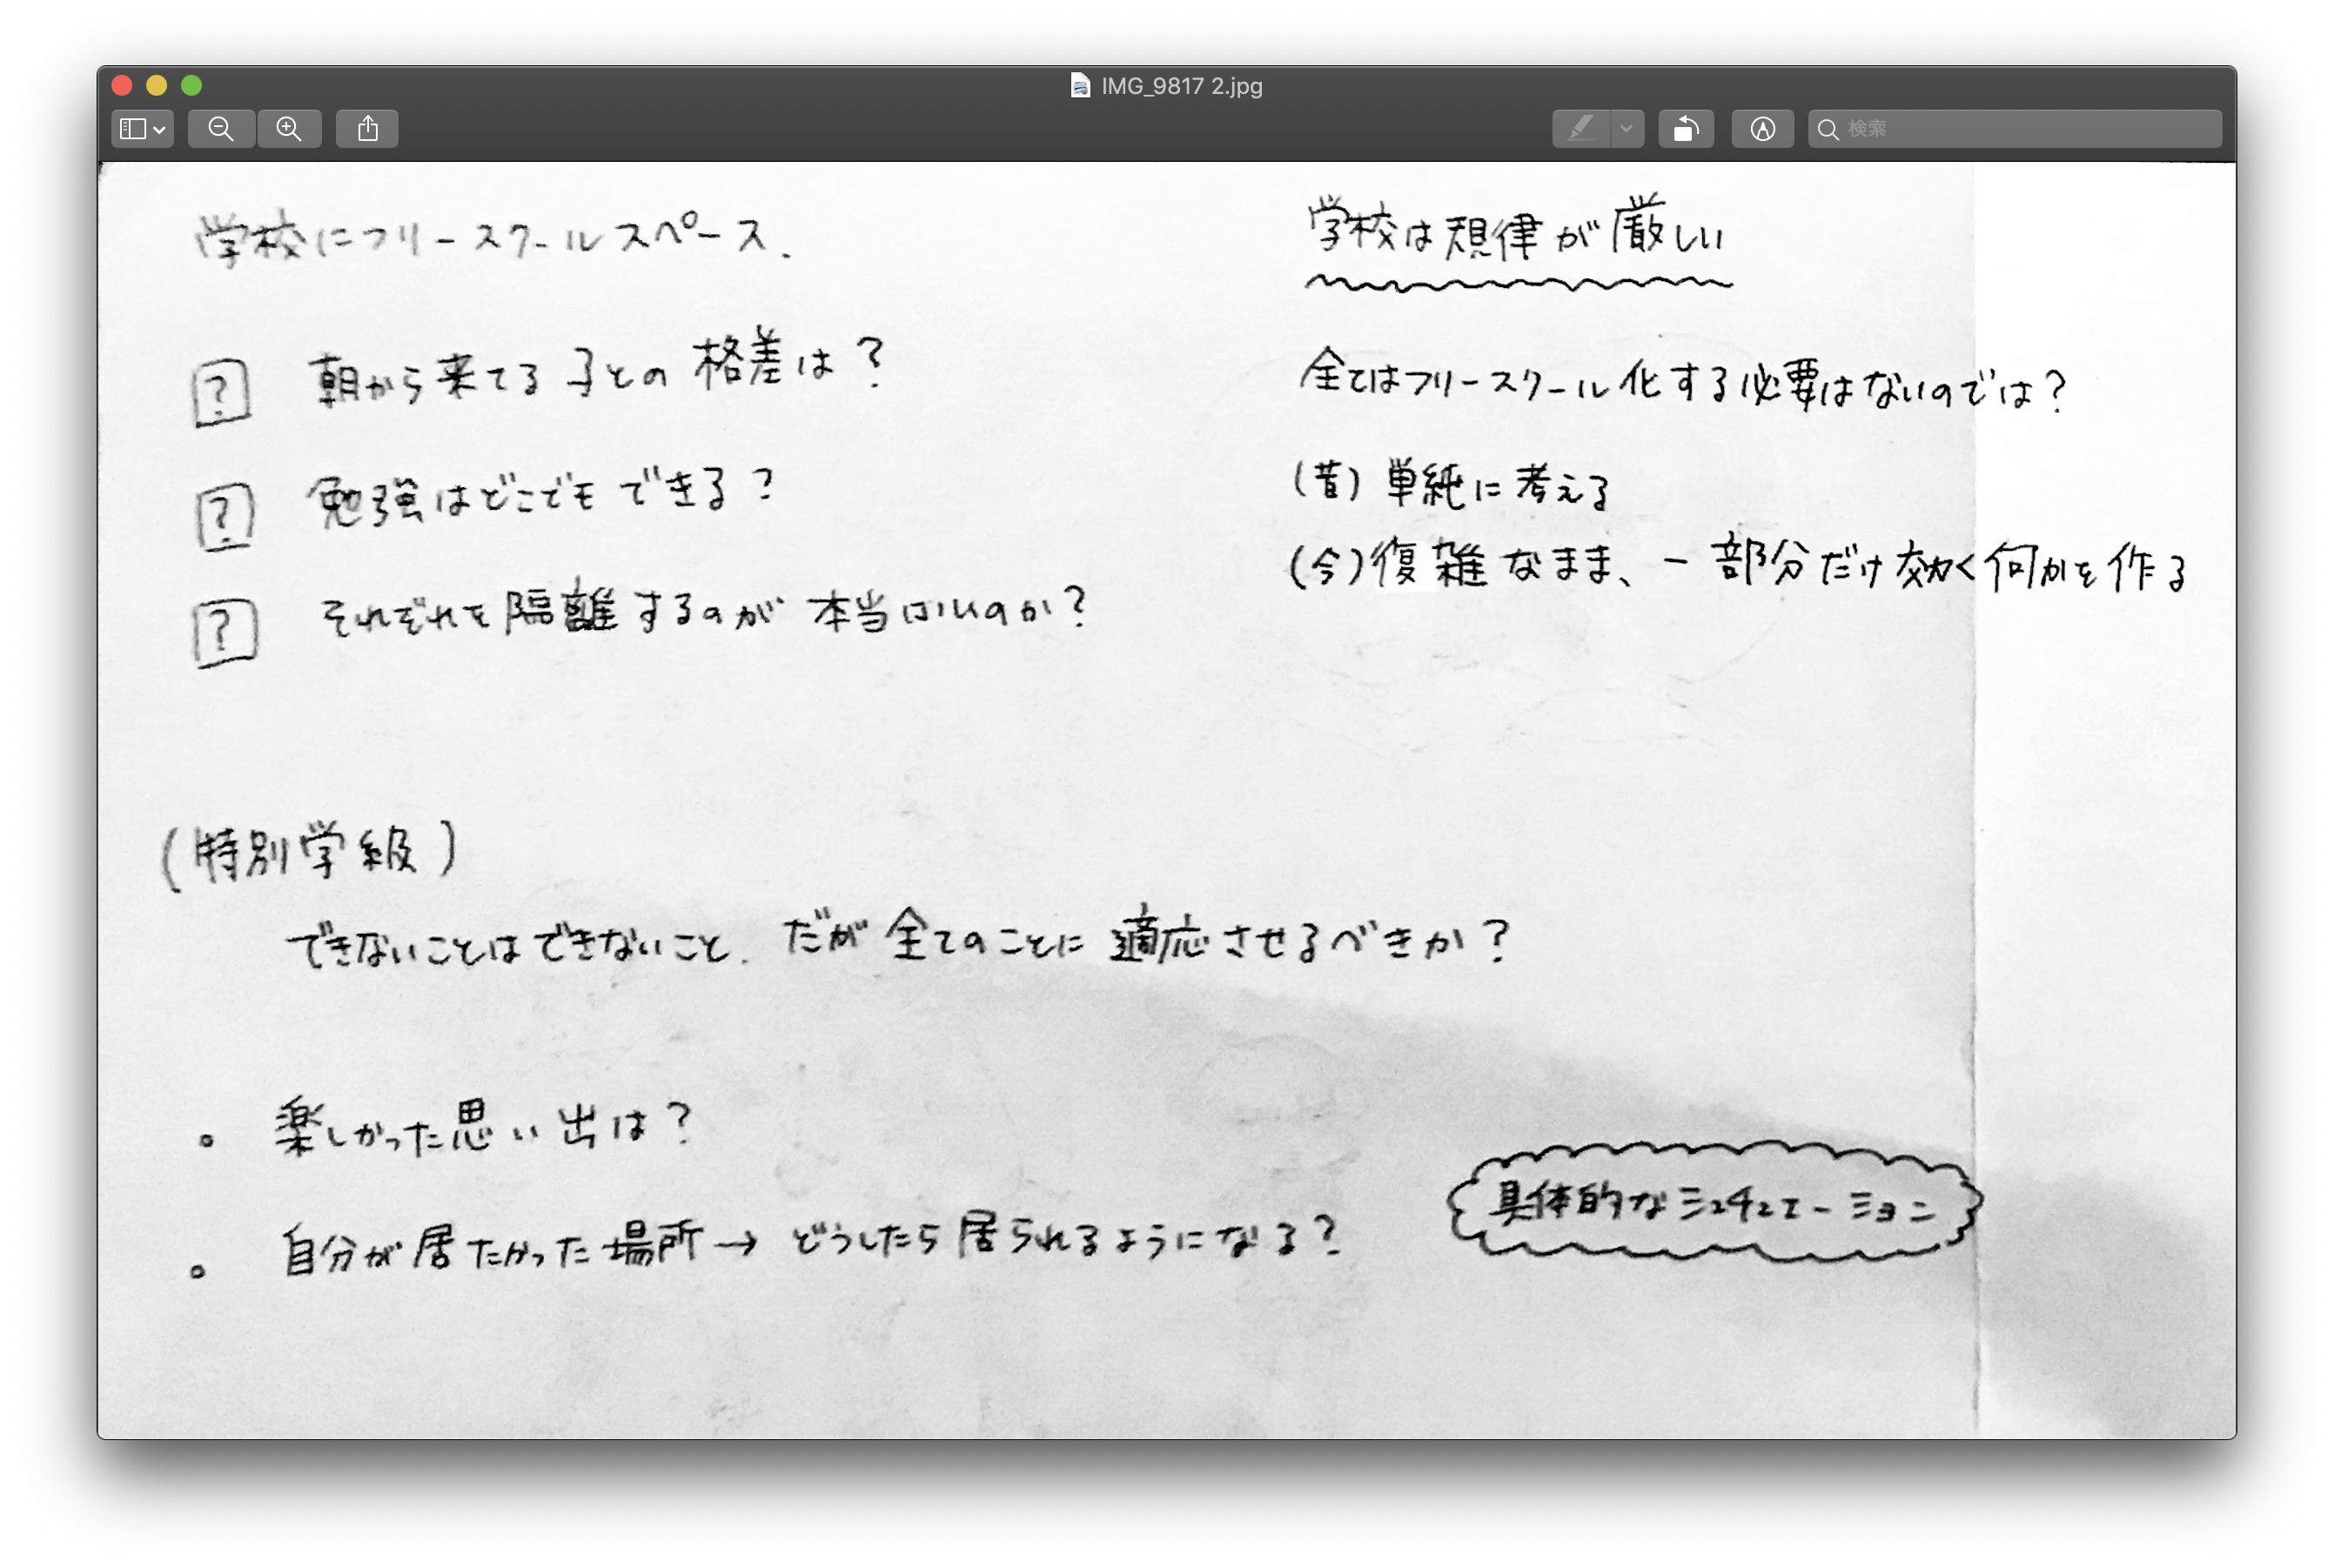 IMG_9817 2.jpg
検索
学校にフリースクールスペース.
? 朝から来てる子との格差は?
? 勉強はどこでもできる?
? それぞれを隔離するのが本当にいいのか?
学校は規律が厳しい
全てはフリースクール化する必要はないのでは?
(昔) 単純に考える
(今) 復雑なまま、一部分だけ効く何かを作る
(特別学級)
できないことはできないこと. だが全てのことに適応させるべきか?
。 楽しかった思い出は?
。 自分が居たかった場所→どうしたら居られるようになる?
具体的なシュチュエーション